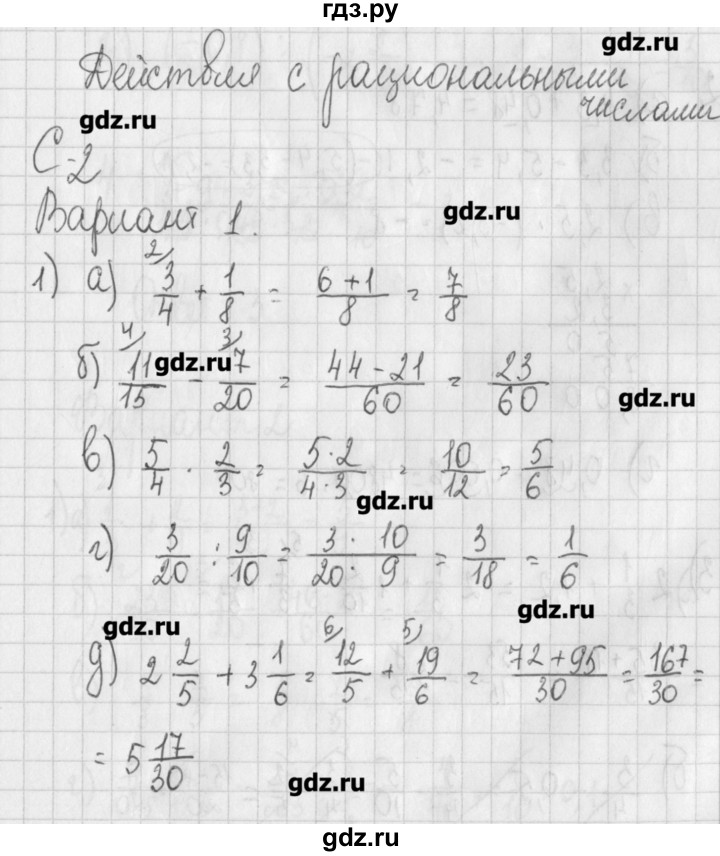 гдз.ру
gdz.ru
Действия с рациональными
числами
gdz.ru
С-2
gdz.ru
Вариант 1.
1) а) 2/ 3/4 + 1/8 = (6+1)/8 = 7/8
б) 4/ 11/15 - 3/ 7/20 = (44-21)/60 = 23/60
gdz.ru
gdz.ru
в) 5/4 · 2/3 = (5·2)/(4·3) = 10/12 = 5/6
gdz.ru
г) 3/20 : 9/10 = (3· 10)/(20· 9) = 3/18 = 1/6
gdz.ru
gdz.ru
д) 2 2/5 + 3 1/6 = 6/ 12/5 + 5/ 19/6 = (72+95)/30 = 167/30 =
= 5 17/30
gdz.ru
gdz.ru